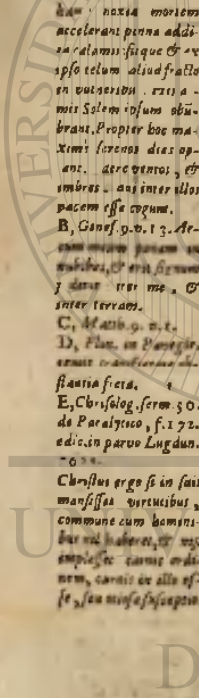 noxia mortem
accelerant pinna addi-
ta calamis: fitque & ex
ipso telum aliud fracto
in vulneribus.
mis Solem ipsum obũ-
brant. Propter hoc ma-
ximè serenos dies op-
ant. ventos, &
imbres. inter illos
pacem esse cogunt.
B, Genes. 9. v. 13. Ar-
cum meum ponam in
nubibus, & erit signum
inter me, &
inter terram.
C, Matth. 9. v. 1.
D, Plin. in Panegir.
stantia ficta.
E, Chrisolog. serm. 50.
de Paralytico, f. 172.
edic. in parvo Lugdun.
Christus ergo si in suis
mansisset virtutibus,
commune cum homini-
bus nil haberet, & nisi
implesset carnis ordi-
nem, carnis in illo es-
se
UNIVERSID
U
D